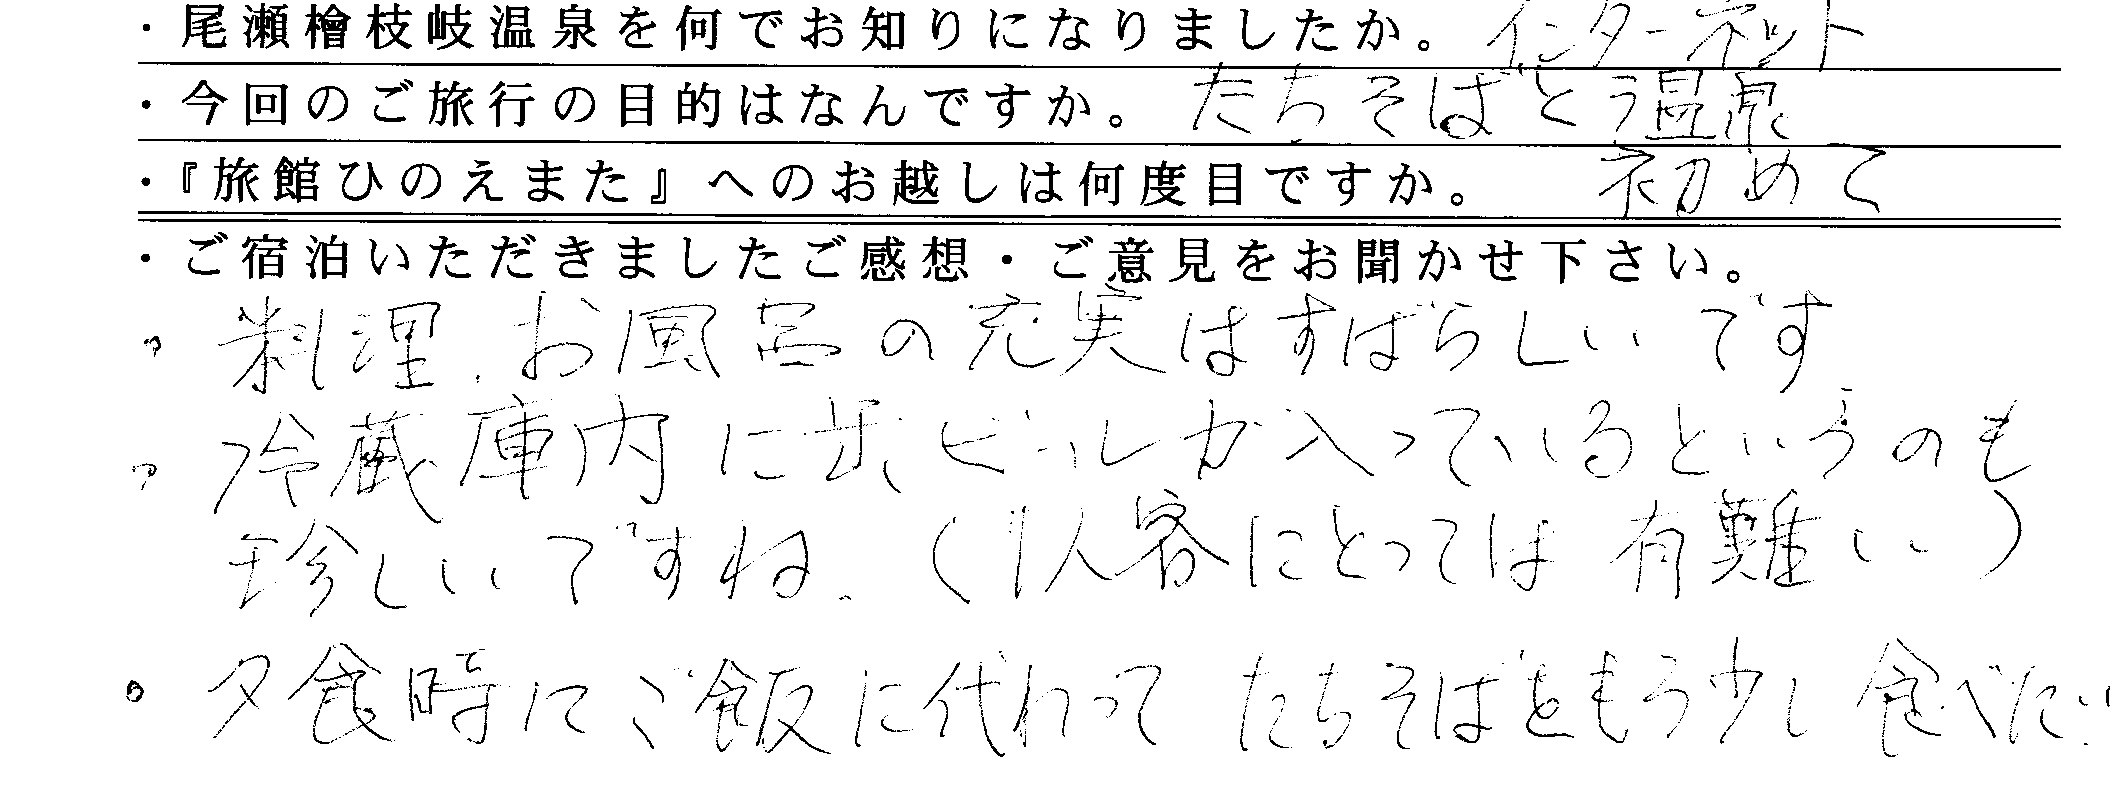 ・尾瀬檜枝岐温泉を何でお知りになりましたか。インターネット
・今回のご旅行の目的はなんですか。たちそばとう温泉
・『旅館ひのえまた』へのお越しは何度目ですか。初めて
・ご宿泊いただきましたご感想・ご意見をお聞かせ下さい。
。料理、お風呂の充実はすばらしいです
。冷蔵庫内に缶ビールが入っているというのも
珍しいですね。(1人客にとっては有難い)
。夕食時にご飯に代わってたちそばをもう少し食べたい